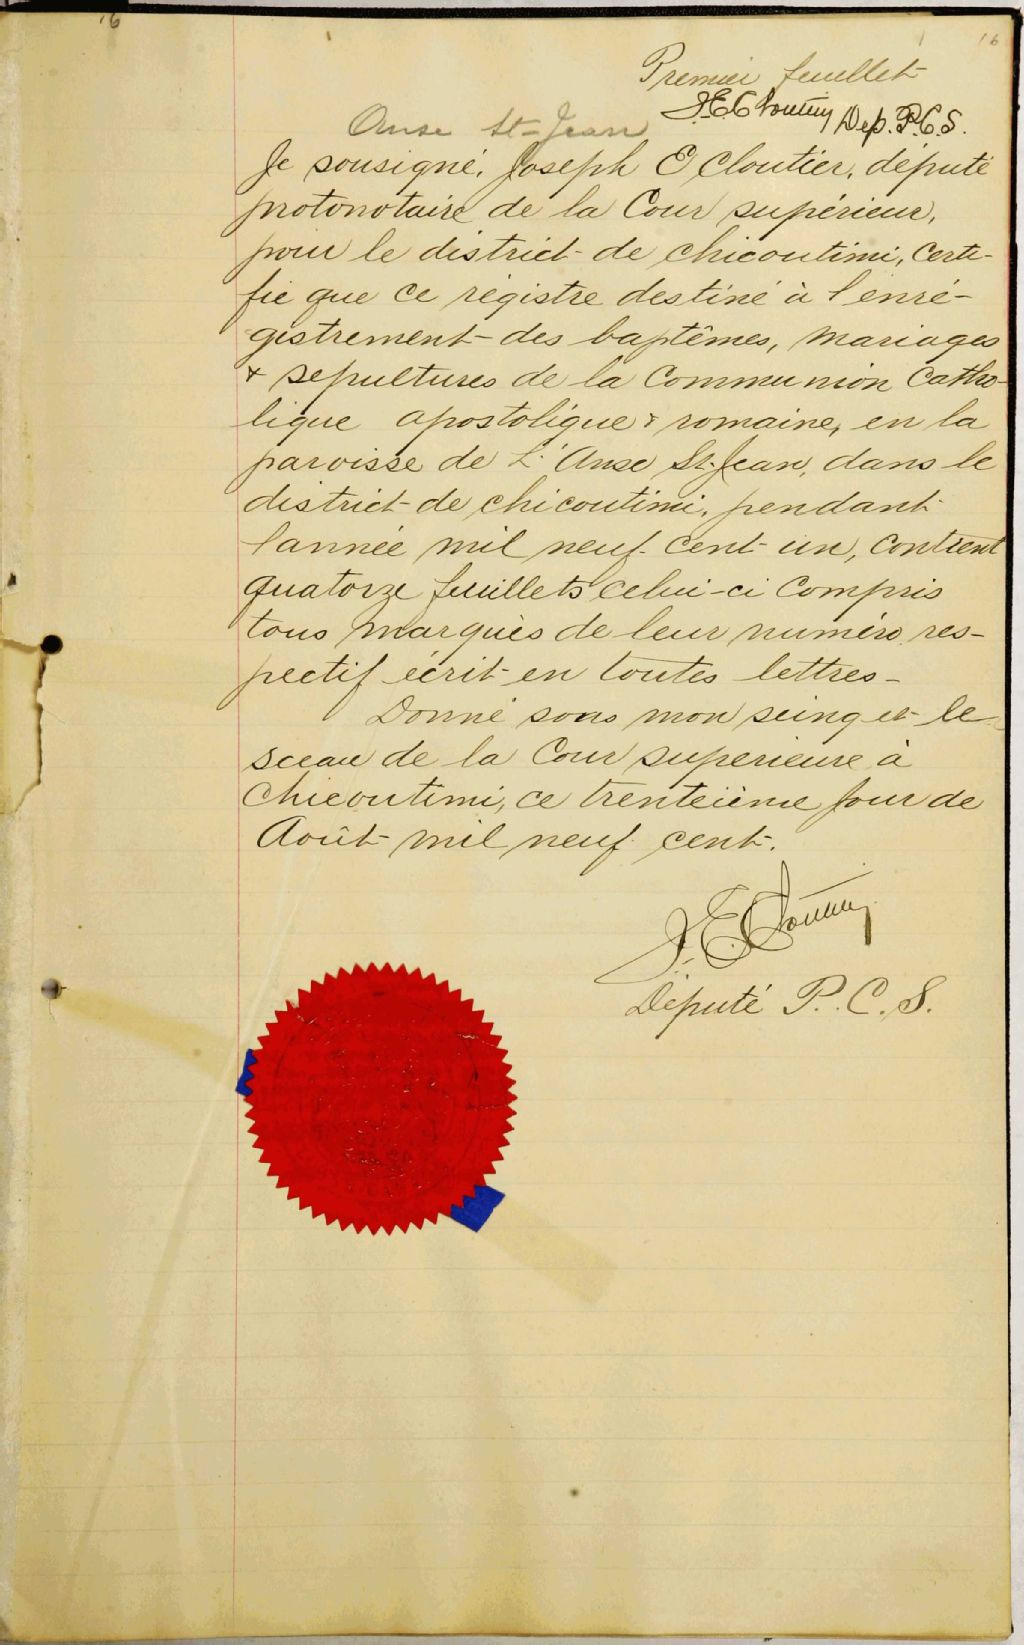 16
16
Premier feuillet
J.E.Cloutier Dep. P.C.S.
Anse St-Jean
Je sousigné, Joseph E Cloutier, député
protonotaire de la Cour supérieur,
pour le district de chicoutimi, certi-
fie que ce régistre destiné à l'enré-
gistrement des baptêmes, mariages
& sepultures de la Communion Catho-
lique apostolique & romaine, en la
paroisse de L'Anse St-Jean, dans le
district de chicoutimi, pendant
l'année mil neuf cent un, contient
quatorze feuillets celui-ci compris
tous marqués de leur numéro res-
pectif écrit en toutes lettres-
Donné sous mon seing et le
sceau de la Cour superieure à
Chicoutimi, ce trenteième jour de
Août mil neuf cent.
J.E.Cloutier
Député P.C.S.